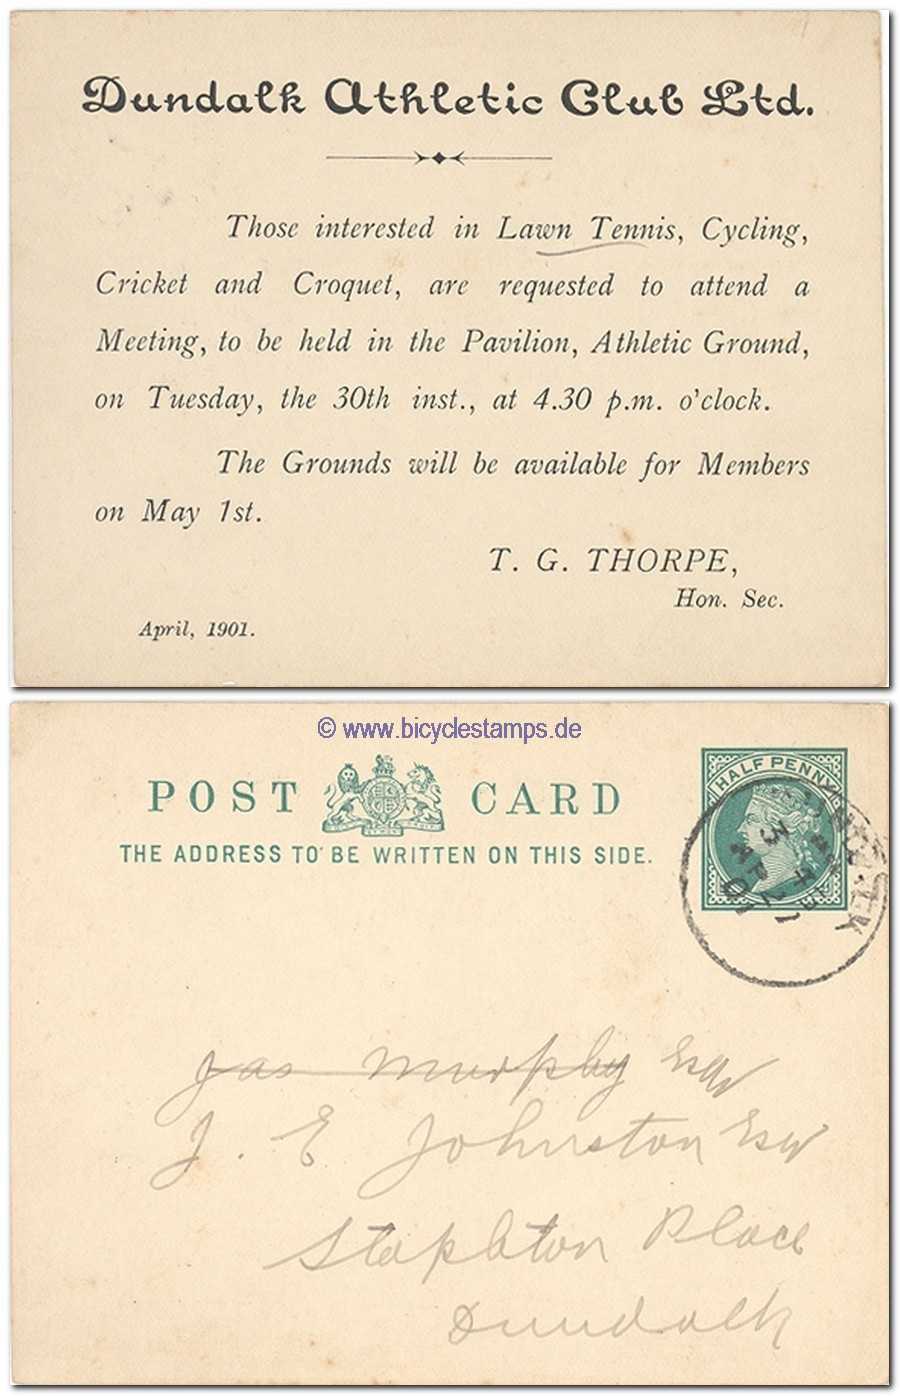 Dundalk Athletic Club Ltd.
Those interested in Lawn Tennis, Cycling,
Cricket and Croquet, are requested to attend a
Meeting, to be held in the Pavilion, Athletic Ground,
on Tuesday, the 30th inst., at 4.30 p.m. o'clock.
The Grounds will be available for Members
on May 1st.
T. G. THORPE,
Hon. Sec.
April, 1901.
© www.bicyclestamps.de
POST CARD
THE ADDRESS TO BE WRITTEN ON THIS SIDE.
HALF PENNY
AP 27
01
Jas Murphy Esq
J. E. Johnston Esq
Stapleton Place
Dundalk